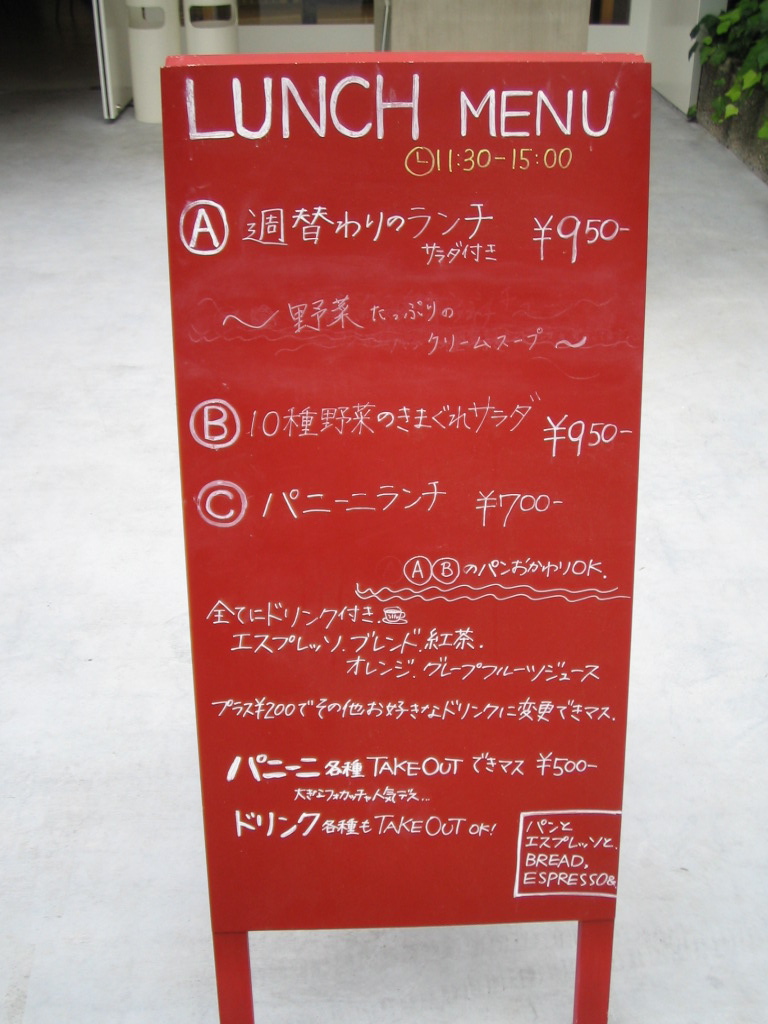 LUNCH MENU
11:30-15:00
Ⓐ 週替わりのランチ ¥950-
サラダ付き
〜野菜たっぷりの
クリームスープ〜
Ⓑ 10種野菜のきまぐれサラダ ¥950-
Ⓒ パニーニランチ ¥700-
ⒶⒷのパンおかわりOK.
全てにドリンク付き.
エスプレッソ.ブレンド.紅茶.
オレンジ.グレープフルーツジュース
プラス¥200でその他お好きなドリンクに変更できマス.
パニーニ各種TAKEOUTできマス ¥500-
大きなフォカッチャ人気デス...
ドリンク各種もTAKEOUT OK!
パンと
エスプレッソと.
BREAD,
ESPRESSO&